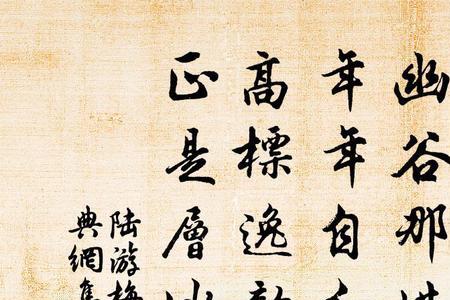 幽谷那
年年自
高標逸
正是層
陸游梅
典網